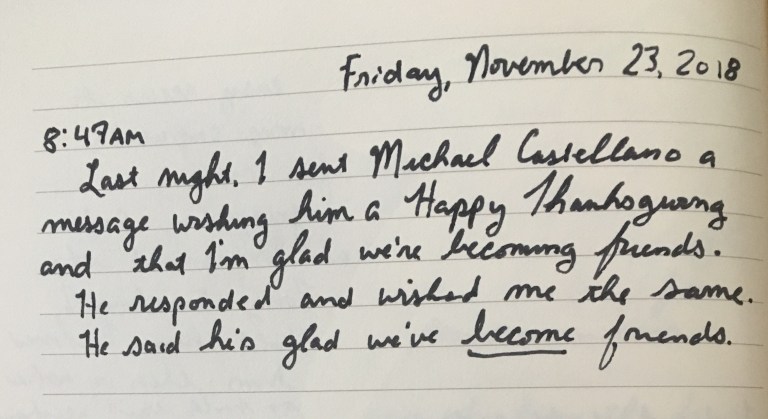 Friday, November 23, 2018
8:47AM
Last night, I sent Michael Castellano a
message wishing him a Happy Thanksgiving
and that I'm glad we're becoming friends.
He responded and wished me the same.
He said he's glad we've become friends.